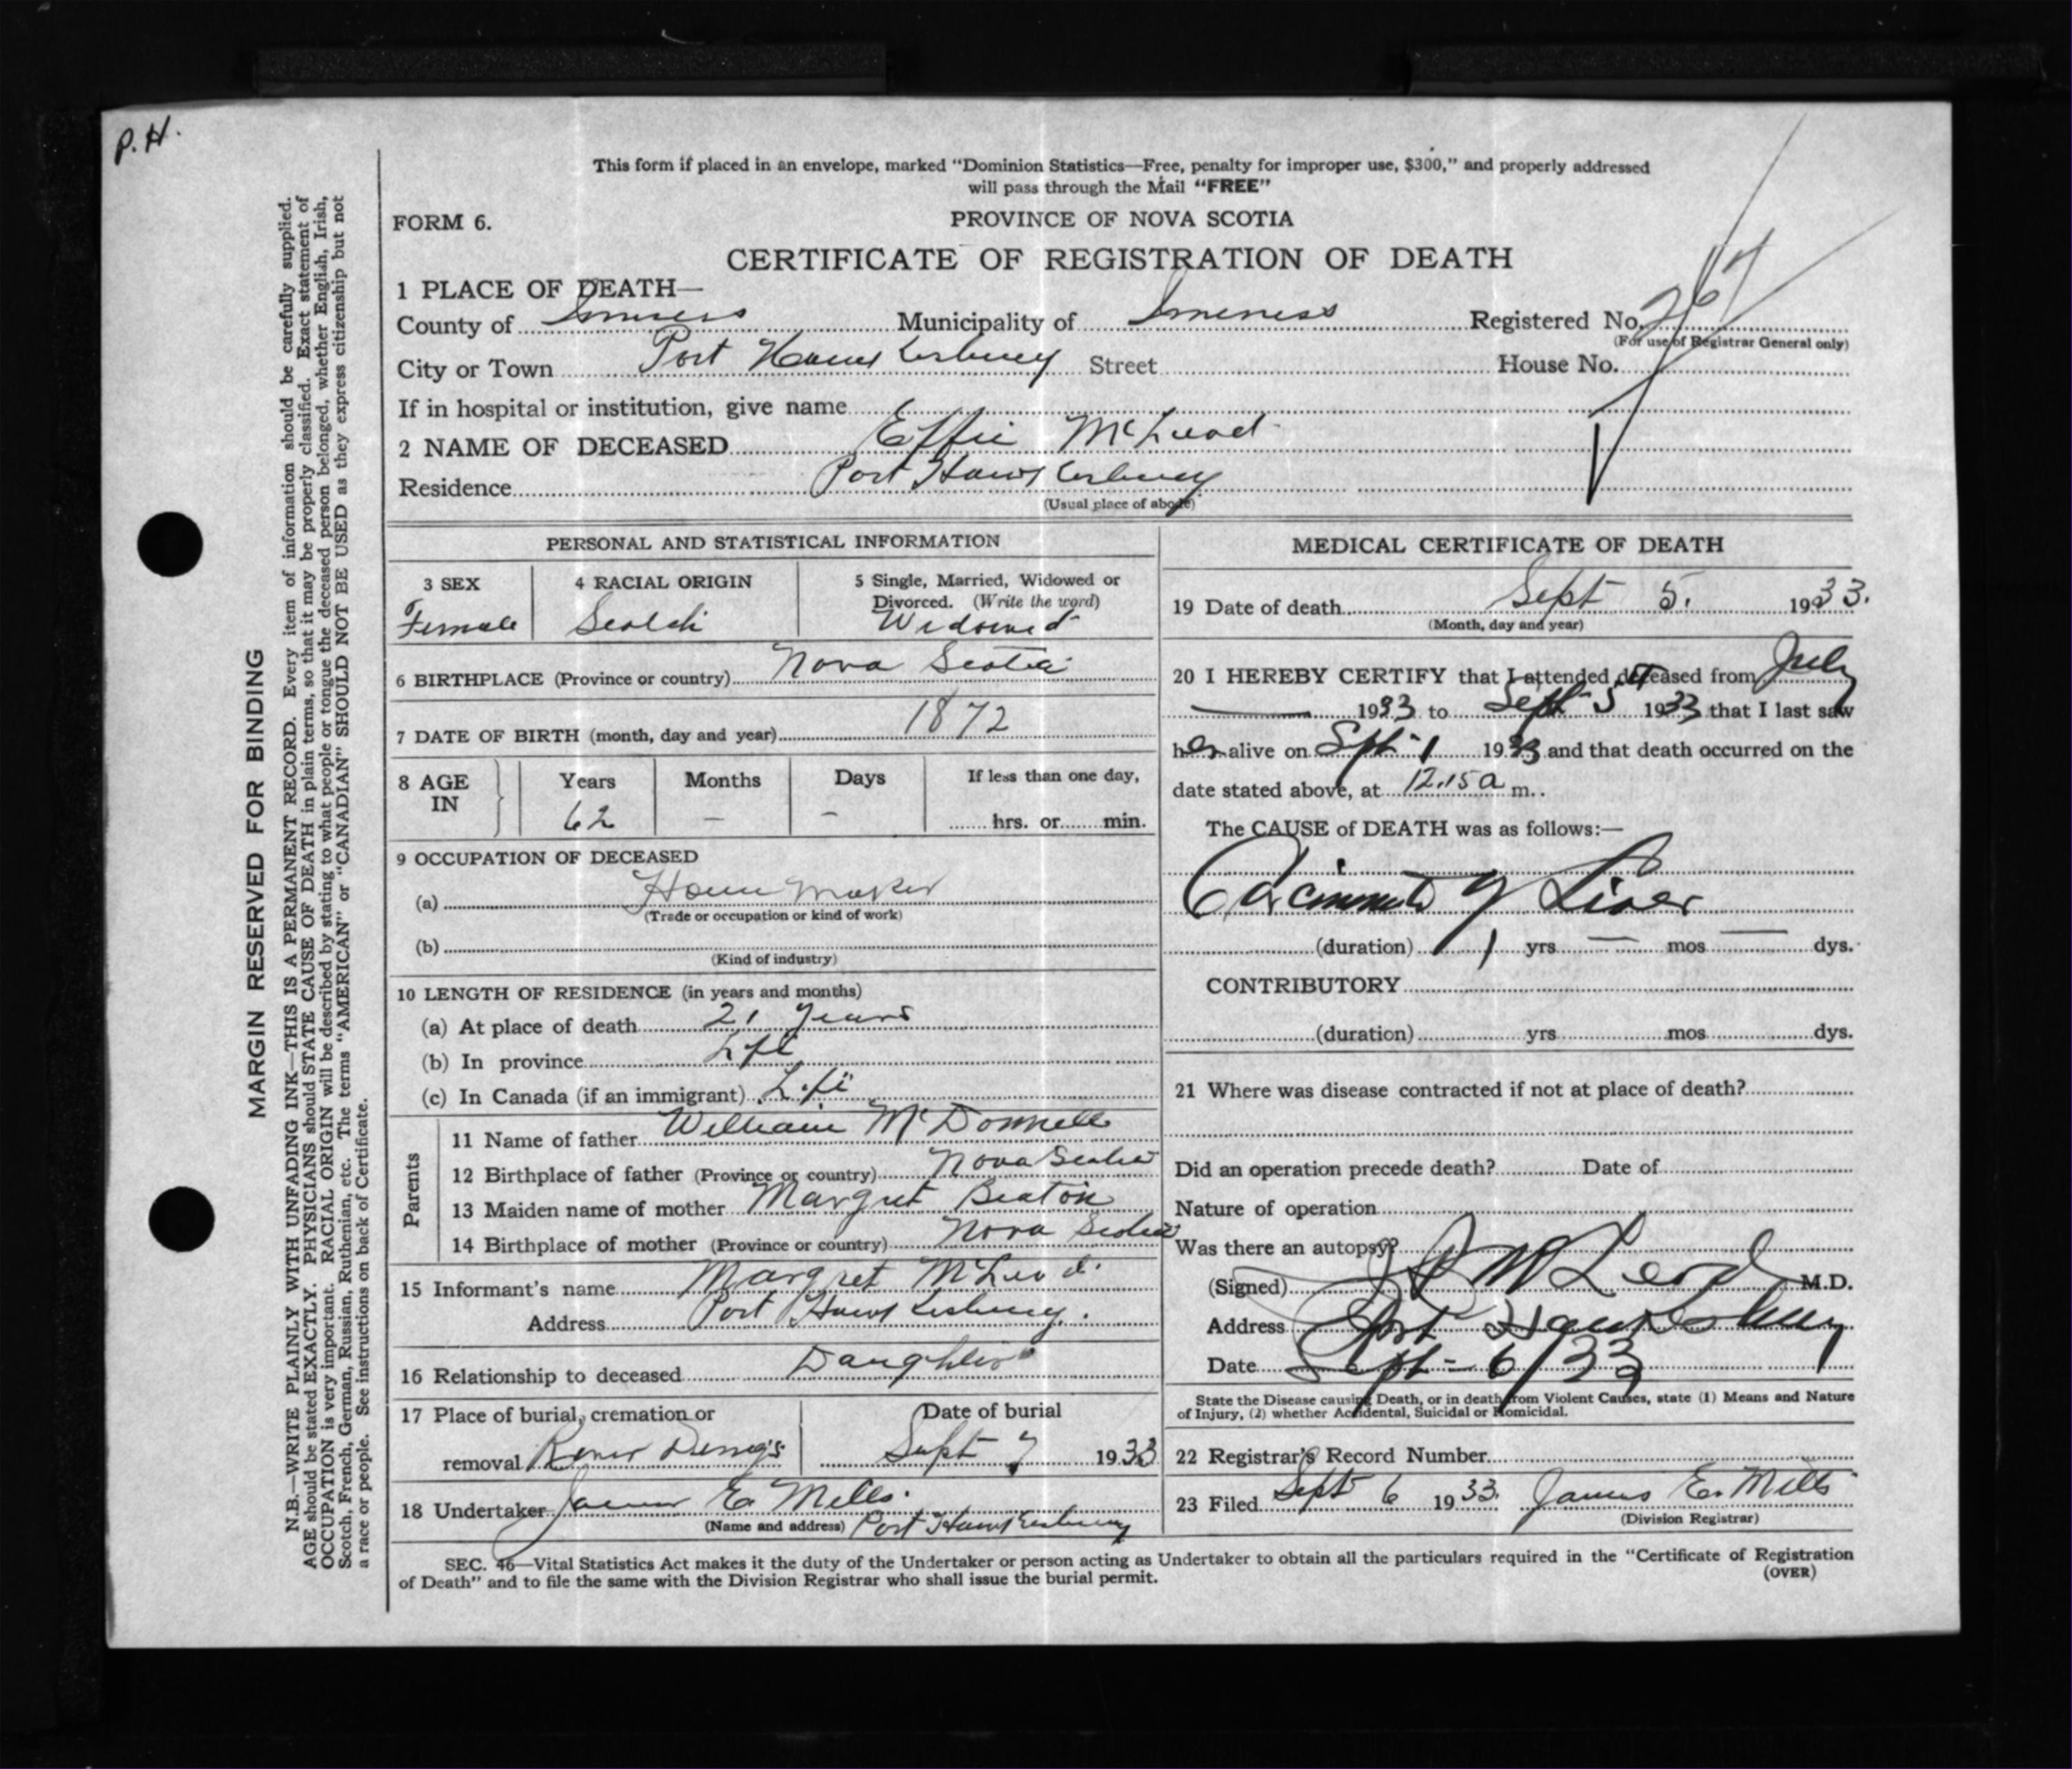 P.H.
This form if placed in an envelope, marked "Dominion Statistics—Free, penalty for improper use, $300," and properly addressed
will pass through the Mail "FREE"
FORM 6.
PROVINCE OF NOVA SCOTIA
CERTIFICATE OF REGISTRATION OF DEATH
1 PLACE OF DEATH—
County of Inverness Municipality of Inverness Registered No. 267
(For use of Registrar General only)
City or Town Port Hawkesbury Street House No.
If in hospital or institution, give name
2 NAME OF DECEASED Effie McLeod
Residence Port Hawkesbury
(Usual place of abode)
PERSONAL AND STATISTICAL INFORMATION
3 SEX
Female
4 RACIAL ORIGIN
Scotch
5 Single, Married, Widowed or
Divorced. (Write the word)
Widowed
6 BIRTHPLACE (Province or country) Nova Scotia
7 DATE OF BIRTH (month, day and year) 1872
8 AGE
IN
Years
62
Months
—
Days
—
If less than one day,
hrs. or min.
9 OCCUPATION OF DECEASED
(a) Home Maker
(Trade or occupation or kind of work)
(b)
(Kind of industry)
10 LENGTH OF RESIDENCE (in years and months)
(a) At place of death 21 years
(b) In province Life
(c) In Canada (if an immigrant) Life
Parents
11 Name of father William McDonnell
12 Birthplace of father (Province or country) Nova Scotia
13 Maiden name of mother Margret Beaton
14 Birthplace of mother (Province or country) Nova Scotia
15 Informant's name Margret McLeod
Address Port Hawkesbury.
16 Relationship to deceased Daughter
17 Place of burial, cremation or
removal River Dennys
Date of burial
Sept 7 1933
18 Undertaker James E. Mills.
(Name and address) Port Hawkesbury
MEDICAL CERTIFICATE OF DEATH
19 Date of death Sept 5. 1933.
(Month, day and year)
20 I HEREBY CERTIFY that I attended deceased from July
— 1933 to Sept 5th 1933 that I last saw
her alive on Sept 1 1933 and that death occurred on the
date stated above, at 12.15 a m.
The CAUSE of DEATH was as follows:—
Carcinomata of Liver
(duration) 1 yrs — mos — dys.
CONTRIBUTORY
(duration) yrs mos dys.
21 Where was disease contracted if not at place of death?
Did an operation precede death? Date of
Nature of operation
Was there an autopsy?
(Signed) McLeod M.D.
Address Port Hawkesbury
Date Sept - 6/33
State the Disease causing Death, or in death from Violent Causes, state (1) Means and Nature
of Injury, (2) whether Accidental, Suicidal or Homicidal.
22 Registrar's Record Number
23 Filed Sept 6 1933. James E. Mills
(Division Registrar)
SEC. 46—Vital Statistics Act makes it the duty of the Undertaker or person acting as Undertaker to obtain all the particulars required in the "Certificate of Registration
of Death" and to file the same with the Division Registrar who shall issue the burial permit.
(OVER)
MARGIN RESERVED FOR BINDING
N.B.—WRITE PLAINLY WITH UNFADING INK—THIS IS A PERMANENT RECORD. Every item of information should be carefully supplied.
AGE should be stated EXACTLY. PHYSICIANS should STATE CAUSE OF DEATH in plain terms, so that it may be properly classified. Exact statement of
OCCUPATION is very important. RACIAL ORIGIN will be described by stating to what people or tongue the deceased person belonged, whether English, Irish,
Scotch, French, German, Russian, Ruthenian, etc. The terms "AMERICAN" or "CANADIAN" SHOULD NOT BE USED as they express citizenship but not
a race or people. See instructions on back of Certificate.